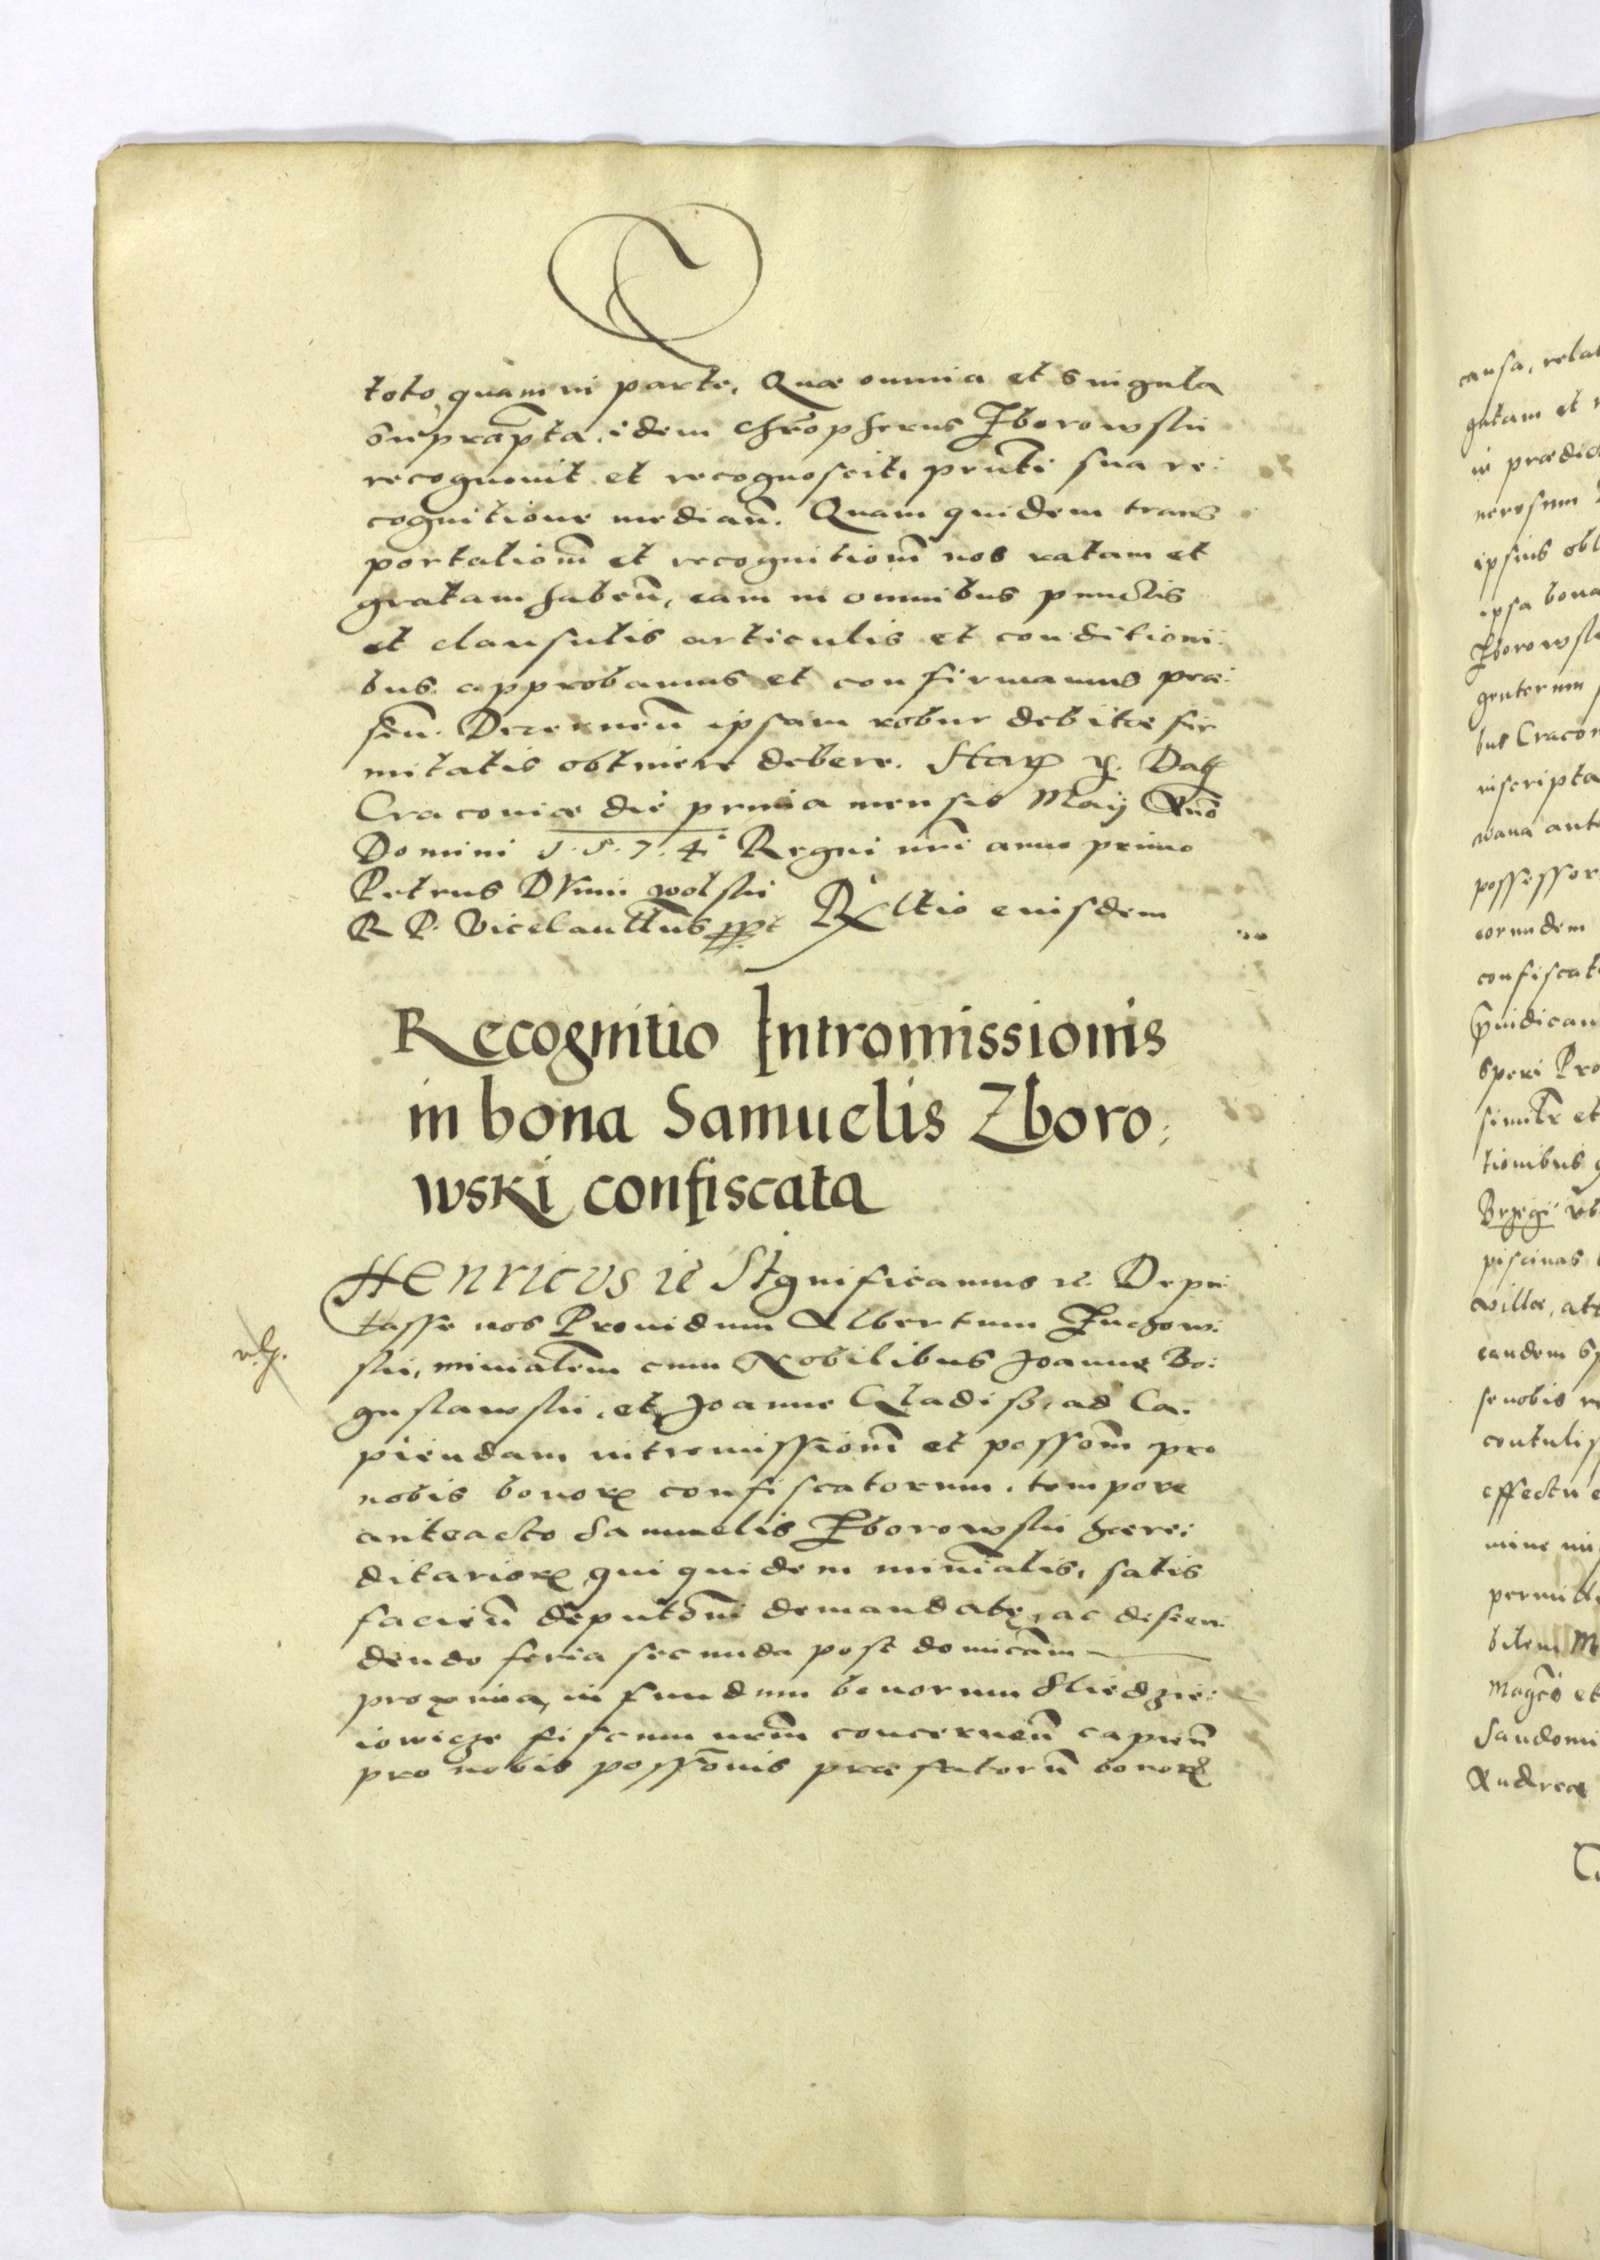 toto quam in parte, Quæ omnia et singula
suprap̃ta, idem Chr̃opherus Zborowski
recognouit et recognoscit, pñti sua re:
cognitione median̄. Quam quidem trans
portationẽ et recognitionẽ nos ratam et
gratam haben̄, eam in omnibus punctis
et clausulis articulis et conditioni:
bus approbamus et confirmamus præ:
sen̄. Decernen̄ ipsam robur debitæ fir
mitatis obtinere debere. Harꝝ ꝛc. Datꝭ
Cracouiæ die prima mensis Maij Año
Domini 1.5.7.4. Regni nr̃i anno primo
Petrus Dunin Wolski
R P. Vicecancellarius ppt Rltio eiusdem
Recognitio Intromissionis
in bona Samuelis Zboro:
wski confiscata
Henricus ꝛc Significamus ꝛc. Depu:
tasse nos Prouidum Albertum Zuchow:
ski, miniałem cum Nobilibus Joanne Bo:
guslawski, et Joanne Gladisz, ad Ca:
piendam intromissionẽ et possom̃ pro
nobis bonorꝝ confiscatorum, tempore
anteacto Samuelis Zborowski hærei
ditariorꝝ qui quidem minialis, satis
facien̄ deputõni demandatæ, ac descen:
dendo feria secunda post domicãm
proxima, in fundum bonorum Sliedzie:
iowicze fiscum nr̃m concernen̄ capien̄
pro nobis possõnis præfatorũ bonorꝝ
causa, relat
gatam et
in prædic
nerosum
ipsius obl
ipsa bona
Zborowsk
genterum
bus Cracou
inscripta
wana ant
possessor
eorundem
confiscat
p̃iudican
speri Pro
simil̃r et
tionibus
Brzegi
piscinas
villæ, at
eandem
se nobis
contulis
effectu
permitt
Magc̃o et
Sandomi
Andreæ